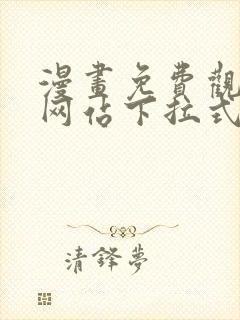 漫畫免費觀
网佔下拉式
清鋒夢